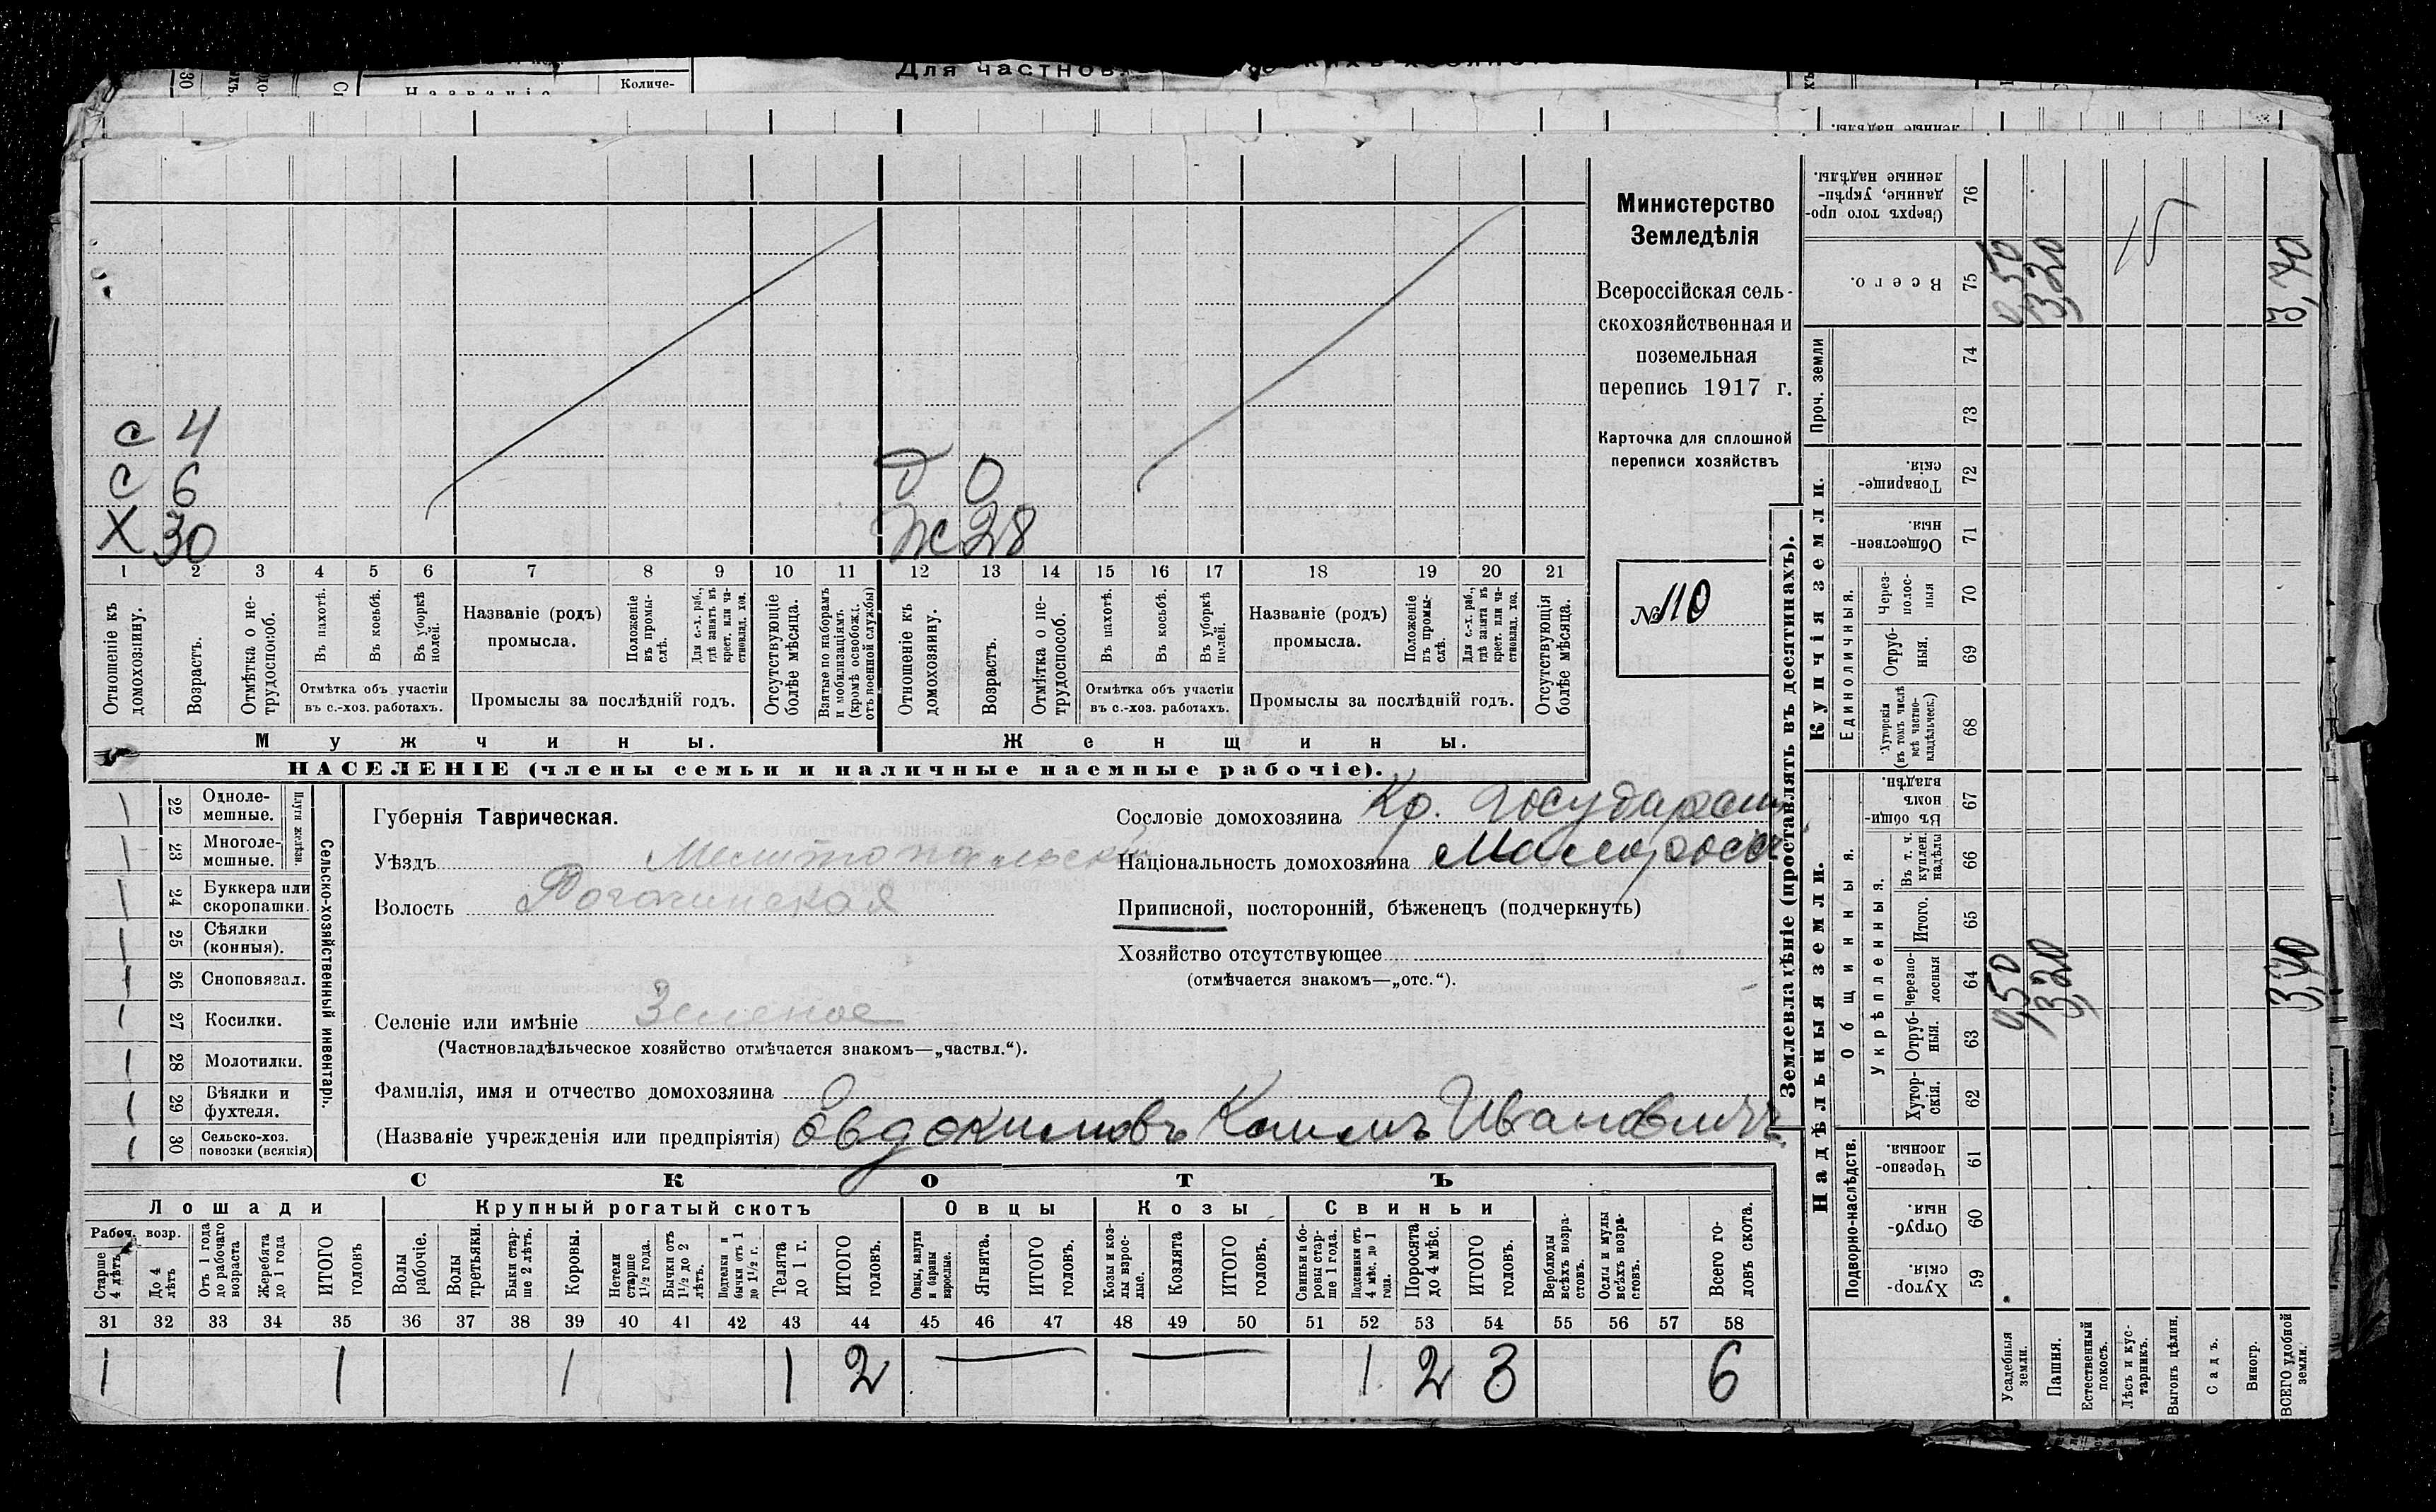 Для частнов
Названіе
Количе-
ленные надѣлы.
с 4
с 6
Х 30
д 0
ж 28
1 2 3 4 5 6 7 8 9 10 11 12 13 14 15 16 17 18 19 20 21
Отношеніе къ домохозяину.
Возрастъ.
Отмѣтка о не-трудоспособ.
Въ пахотѣ.
Въ косьбѣ.
Въ уборкѣ полей.
Отмѣтка объ участіи
въ с.-хоз. работахъ.
Названіе (родъ)
промысла.
Положеніе въ промы-слѣ.
Для с.-х. раб., гдѣ занятъ въ крест. или ча-стновлад. хоз.
Промыслы за послѣдній годъ.
Отсутствующіе болѣе мѣсяца.
Взятые по наборамъ и мобилизаціямъ (кромѣ освобожд. отъ военной службы)
Отношеніе къ домохозяину.
Возрастъ.
Отмѣтка о не-трудоспособ.
Въ пахотѣ.
Въ косьбѣ.
Въ уборкѣ полей.
Отмѣтка объ участіи
въ с.-хоз. работахъ.
Названіе (родъ)
промысла.
Положеніе въ промы-слѣ.
Для с.-х. раб., гдѣ занята въ крест. или ча-стновлад. хоз.
Промыслы за послѣдній годъ.
Отсутствующія болѣе мѣсяца.
Мужчины. Женщины.
НАСЕЛЕНІЕ (члены семьи и наличные наемные рабочіе).
Министерство
Земледѣлія
Всероссійская сель-
скохозяйственная и
поземельная
перепись 1917 г.
Карточка для сплошной
переписи хозяйствъ
№ 110
22 Одноле-мешные.
23 Многоле-мешные.
Плуги желѣзн.
24 Буккера или скоропашки.
25 Сѣялки (конныя).
26 Сноповязал.
27 Косилки.
28 Молотилки.
29 Вѣялки и фухтеля.
30 Сельско-хоз. повозки (всякія)
Сельско-хозяйственный инвентарь.
Губернія Таврическая.
Уѣздъ Мелитопольскій
Волость Рогачинская
Селеніе или имѣніе Зеленое
(Частновладѣльческое хозяйство отмѣчается знакомъ—„частвл.“).
Фамилія, имя и отчество домохозяина
(Названіе учрежденія или предпріятія) Евдокимовъ Климъ Ивановичъ
Сословіе домохозяина Кр. Государств
Національность домохозяина Малороссъ
Приписной, посторонній, бѣженецъ (подчеркнуть)
Хозяйство отсутствующее
(отмѣчается знакомъ—„отс.“).
СКОТЪ
Лошади Крупный рогатый скотъ Овцы Козы Свиньи
Рабоч. возр.
Старше 4 лѣтъ
До 4 лѣтъ
Отъ 1 года до рабочаго возраста
Жеребята до 1 года
ИТОГО головъ
Волы рабочіе.
Волы третьяки.
Быки стар-ше 2 лѣтъ.
Коровы.
Нетели старше 1½ года.
Бычки отъ 1½ до 2 лѣтъ.
Подтелки и бычки отъ 1 до 1½ г.
Телята до 1 г.
ИТОГО головъ.
Овцы, валухи и бараны взрослые.
Ягнята.
ИТОГО головъ.
Козы и коз-лы взрос-лые.
Козлята
ИТОГО головъ.
Свиньи и бо-ровы стар-ше 1 года.
Подсвинки отъ 4 мѣс. до 1 года.
Поросята до 4 мѣс.
ИТОГО головъ.
Верблюды всѣхъ возра-стовъ.
Ослы и мулы всѣхъ возра-стовъ.
Всего го-ловъ скота.
31 32 33 34 35 36 37 38 39 40 41 42 43 44 45 46 47 48 49 50 51 52 53 54 55 56 57 58
1 1 1 1 2 — — 1 2 3 6
Землевладѣніе (проставлять въ десятинахъ).
Надѣльныя земли. Купчія земли. Проч. земли
Подворно-наслѣдств.
Общинныя.
Укрѣпленныя.
Единоличныя.
59 Хутор-скія.
60 Отруб-ныя.
61 Черезпо-лосныя.
62 Хутор-скія.
63 Отруб-ныя.
64 Черезпо-лосныя 0,50 3,20 3,70
65 Итого.
66 Въ т. ч. куплен. надѣлы
67 Въ общин-номъ владѣн.
68 Хуторскія (въ томъ числѣ всѣ частно-владѣльческ.)
69 Отруб-ныя.
70 Через-полос-ныя
71 Обществен-ныя.
72 Товарище-скія.
73
74
75 Всего. 0,50 3,20 15 3,70
76 Сверхъ того про-данные, укрѣп-ленные надѣлы.
Усадебныя земли.
Пашня.
Естественный покосъ.
Лѣсъ и кус-тарникъ.
Выгонъ цѣлин.
Садъ.
Виногр.
ВСЕГО удобной земли.